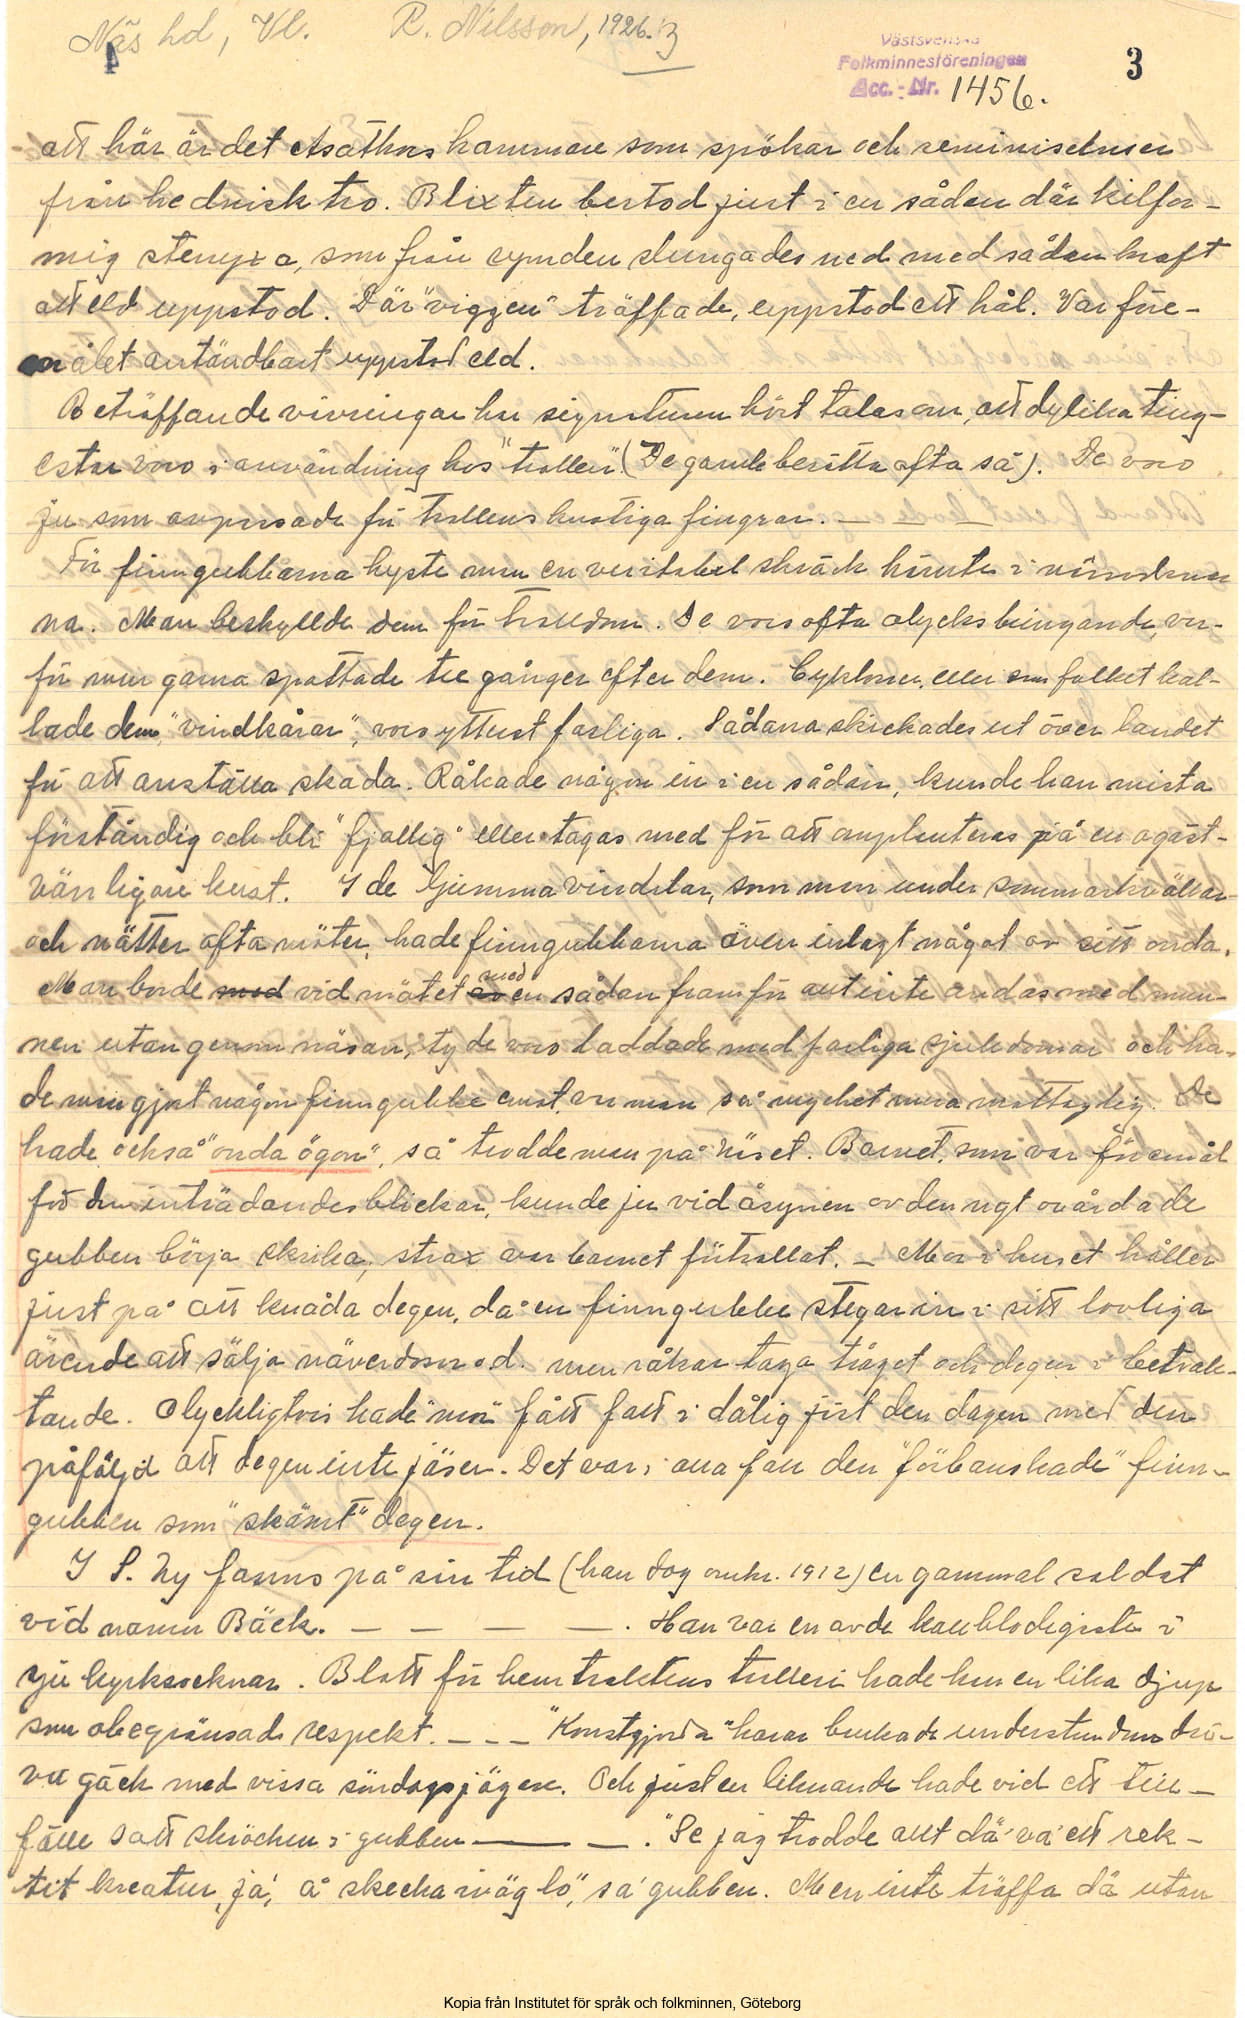 Näs hd, Vl. R. Nilsson, 1926. 3
Västsvenska
Folkminnesföreningen
Acc. - Nr. 1456.
3
att här är det Asathors hammare som spökar och reminiscenser
från hednisk tro. Blixten bestod just i en sådan där kilfor-
mig stenyxa, som från rymden slungades ned med sådan kraft
att eld uppstod. Där "viggen" träffade, uppstod ett hål. Var före-
målet antändbart uppstod eld.
Beträffande vivringar har signaturen hört talas om, att dylika ting-
estar voro i användning hos "trollen" (De gamle berätta ofta så). De voro
ju som avpassade för trollens knotiga fingrar. — — —
För finngubbarna hyste man en veritabel skräck häruti i
na. Man beskyllde dem för trolldom. De voro ofta olycksbringande, var-
för man gärna spottade tre gånger efter dem. Cykloner, eller som folket kal-
lade dem "vindkårar", voro ytterst farliga. Sådana skickades ut över landet
för att anställa skada. Råkade någon in i en sådan, kunde han mista
förståndig och bli "fjollig" eller tagas med för att omplanteras på en ogäst-
vänligare kust. I de ljumma vindilar, som man under sommarkvällar
och nätter ofta möter, hade finngubbarna även inlagt något av sitt onda.
Man borde med vid mötet av med en sådan framför allt inte andas med mun-
nen utan genom näsan, ty de voro laddade med farliga sjukdomar och ha-
de man gjort någon finngubbe emot, var man så mycket mera mottaglig. De
hade också "onda ögon", så trodde man på Näset. Barnet, som var föremål
för den inträdandes blickar, kunde ju vid åsynen av den ngt ovårdade
gubben börja skrika, strax var barnet förtrollat. — Mor i huset håller
just på att knåda degen, då en finngubbe stegar in i sitt lovliga
ärende att sälja näverdosor o d. men råkar taga tråget och degen i betrak-
tande. Olyckligtvis hade "mor" fått fatt i dålig jäst den dagen med den
påföljd att degen inte jäser. Det var i alla fall den "förbannade" finn-
gubben som "skämt" degen.
I S. Ny fanns på sin tid (han dog omkr. 1912) en gammal soldat
vid namn Bäck. — — — —. Han var en av de kallblodigaste i
sju kyrksocknar. Blott för hemtraktens trolleri hade han en lika djup
som obegränsad respekt. — — — "Konstgjorda" harar brukade understundom dri-
va gäck med vissa söndagsjägare. Och just en liknande hade vid ett till-
fälle satt skräcken i gubben — —. "Se jag trodde att dä' va' ett rek-
tit kreatur, ja', å skecka iväg lö", sa' gubben. Men inte träffa dä utan
Kopia från Institutet för språk och folkminnen, Göteborg